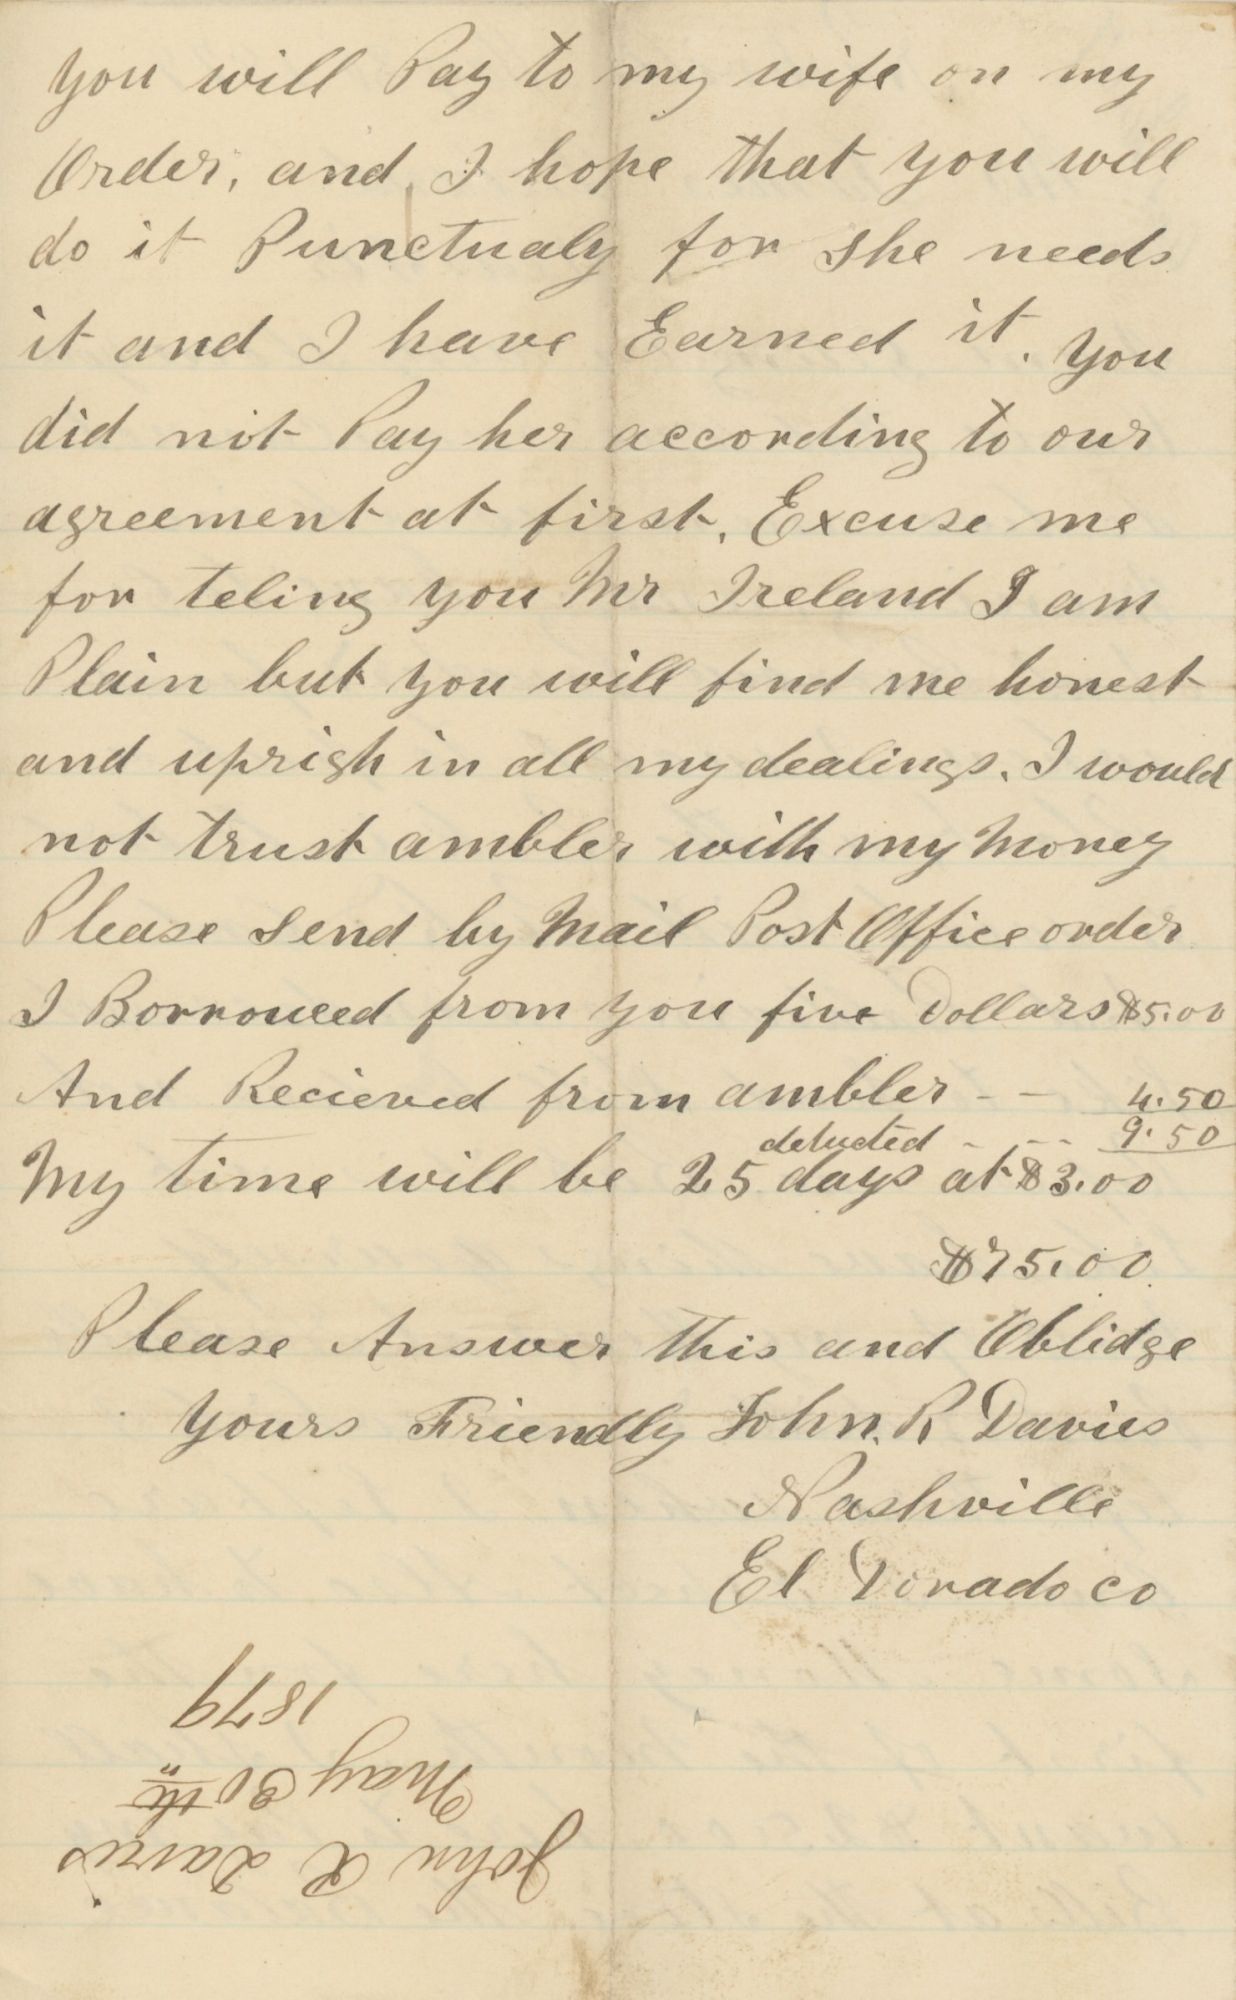 you will Pay to my wife on my
Order, and I hope that you will
do it Punctualy for she needs
it and I have Earned it. you
did not Pay her according to our
agreement at first, Excuse me
for teling you Mr Ireland I am
Plain but you will find me honest
and uprigh in all my dealings. I would
not trust ambler with my Money
Please Send by Mail Post Office order
I Borroweed from you five Dollars $5.00
And Recieved from ambler - - 4.50
deducted - - - 9.50
My time will be 25 days at $3.00
$75.00
Please Answer this and Oblidge
yours Friendly John. R Davies
Nashville
El Dorado co
John R Davies
May 30th
1879